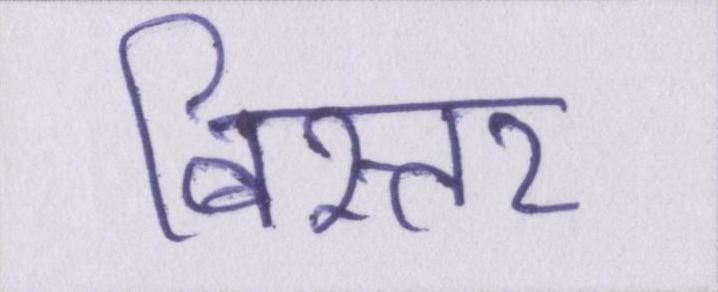 बिस्तर